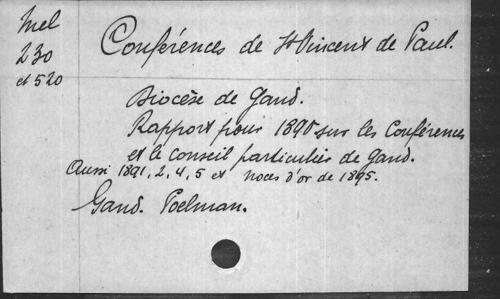 Mel
230
et 520
Conférences de St Vincent de Paul.
Diocèse de Gand.
Rapport pour 1890 sur les Conférences
et le conseil particulier de Gand.
Aussi 1891, 2, 4, 5 et noces d'or de 1895.
Gand. Poelman.